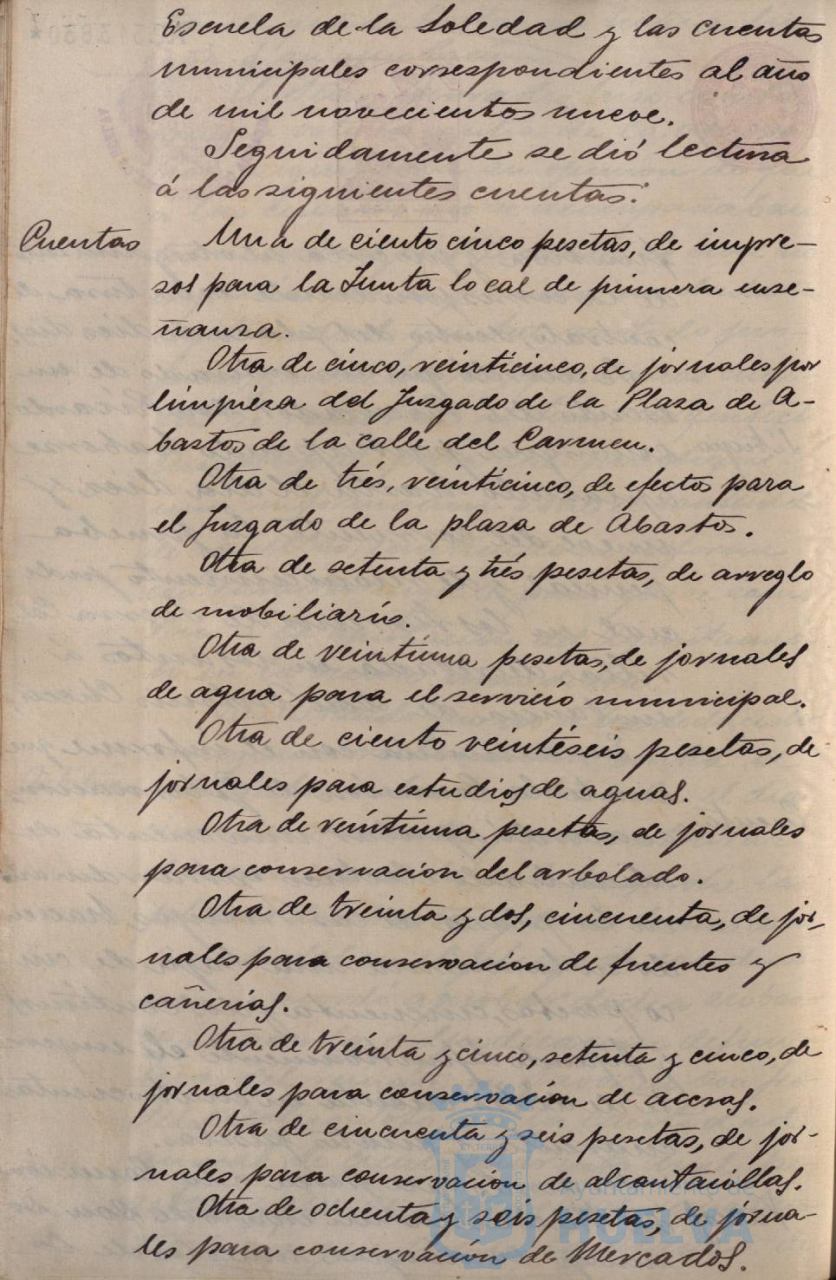 Escuela de la Soledad y las cuentas
municipales correspondientes al año
de mil novecientos nueve.
Seguidamente se dió lectura
á las siguientes cuentas:
Cuentas
Una de ciento cinco pesetas, de impre-
sos para la Junta local de primera ense-
ñanza.
Otra de cinco, veinticinco, de jornales por
limpieza del Juzgado de la Plaza de A-
bastos de la calle del Carmen.
Otra de trés, veinticinco, de efectos para
el Juzgado de la plaza de Abastos.
Otra de setenta y trés pesetas, de arreglo
de mobiliario.
Otra de veintiuna pesetas, de jornales
de agua para el servicio municipal.
Otra de ciento veintiseis pesetas, de
jornales para estudios de aguas.
Otra de veintiuna pesetas, de jornales
para conservacion del arbolado.
Otra de treinta y dos, cincuenta, de jor-
nales para conservacion de fuentes y
cañerias.
Otra de treinta y cinco, setenta y cinco, de
jornales para conservacion de aceras.
Otra de cincuenta y seis pesetas, de jor-
nales para conservacion de alcantarillas.
Otra de ochenta y seis pesetas, de jorna-
les para conservacion de Mercados.
Ayuntamiento de
HUELVA